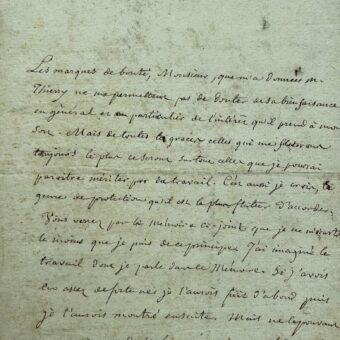 Les marques de bonté, Monsieur, que m'a données M.
Thierry ne me permettent pas de douter de sa bienfaisance
en général et en particulier de l'intérêt qu'il prend à mon
sort. Mais de toutes les graces celles qui me flatteront
toujours le plus ce seront surtout celles que je pourrai
paroitre mériter par du travail. C'en aussi je crois, le
genre de protection qu'il est le plus flatté d'accorder.
Vous verrez par le mémoire ci-joint que je ne m'écarte
le moins que je puis de ce principe. J'ai imaginé le
travail dont je parle dans le Mémoire. Si j'avois
eu assez de fortune je l'aurois fait d'abord puis
je l'aurois montré ensuite. Mais ne le pouvant